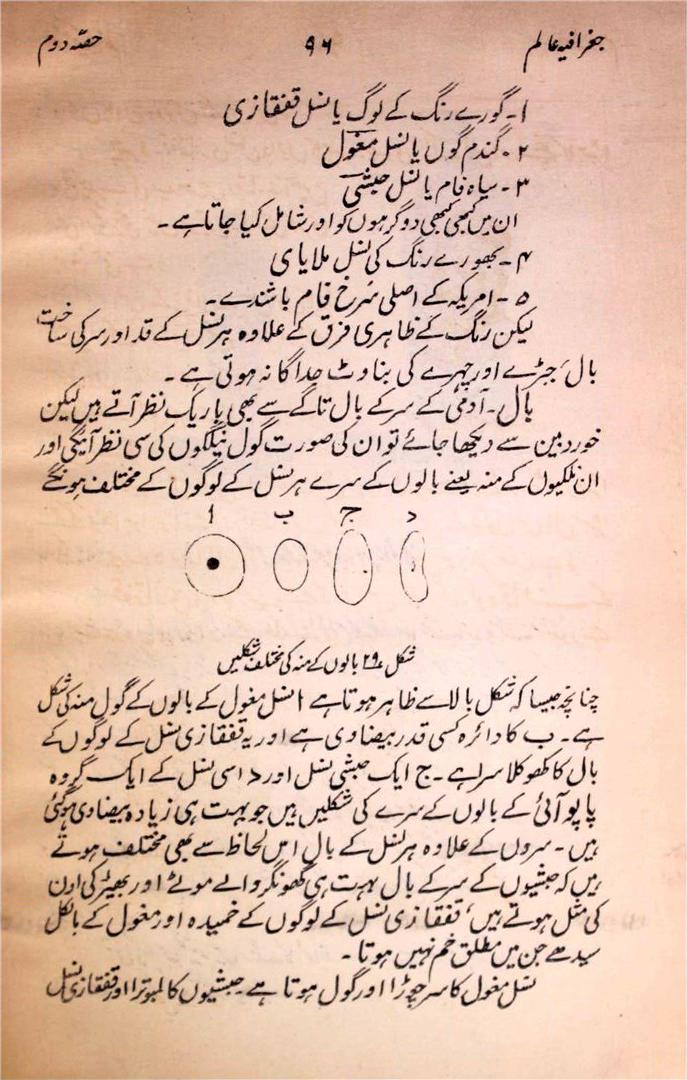 جغرافیہ عالم ۹۶ حصّہ دوم
۱۔ گورے رنگ کے لوگ یا نسل قفقازی
۲۔ گندم گوں یا نسل مغول
۳۔ سیاہ فام یا نسل حبشی
ان میں کبھی کبھی دو گرہوں کو اور شامل کیا جاتا ہے۔
۴۔ بھورے رنگ کی نسل ملایای
۵۔ امریکہ کے اصلی سُرخ فام باشندے۔
لیکن رنگ کے ظاہری فرق کے علاوہ ہر نسل کے قد اور سر کی ساخت
بال، جبڑے اور چہرے کی بناوٹ جداگانہ ہوتی ہے۔
بال۔ آدمی کے سر کے بال تاگے سے بھی باریک نظر آتے ہیں لیکن
خوردبین سے دیکھا جائے تو ان کی صورت گول نلکیوں کی سی نظر آئیگی اور
ان نلکیوں کے منہ یعنے بالوں کے سرے ہر نسل کے لوگوں کے مختلف ہونگے
ا ب ج د
شکل ۲۹ بالوں کے منہ کی مختلف شکلیں
چنانچہ جیسا کہ شکل بالا سے ظاہر ہوتا ہے ا نسل مغول کے بالوں کے گول منہ کی شکل
ہے۔ ب کا دائرہ کسی قدر بیضاوی ہے اور یہ قفقازی نسل کے لوگوں کے
بال کا کھوکلا سرا ہے۔ ج ایک حبشی نسل اور د اسی نسل کے ایک گروہ
پاپوآئی کے بالوں کے سرے کی شکلیں ہیں جو بہت ہی زیادہ بیضاوی ہو گئی
ہیں۔ سروں کے علاوہ ہر نسل کے بال اس لحاظ سے بھی مختلف ہوتے
ہیں کہ حبشیوں کے سر کے بال بہت ہی گھونگر والے موٹے اور بھیڑ کی اون
کی مثل ہوتے ہیں، قفقازی نسل کے لوگوں کے خمیدہ اور مغول کے بالکل
سیدھے جن میں مطلق خم نہیں ہوتا۔
نسل مغول کا سر چوڑا اور گول ہوتا ہے۔ حبشیوں کا لمبوترا اور قفقازی نسل